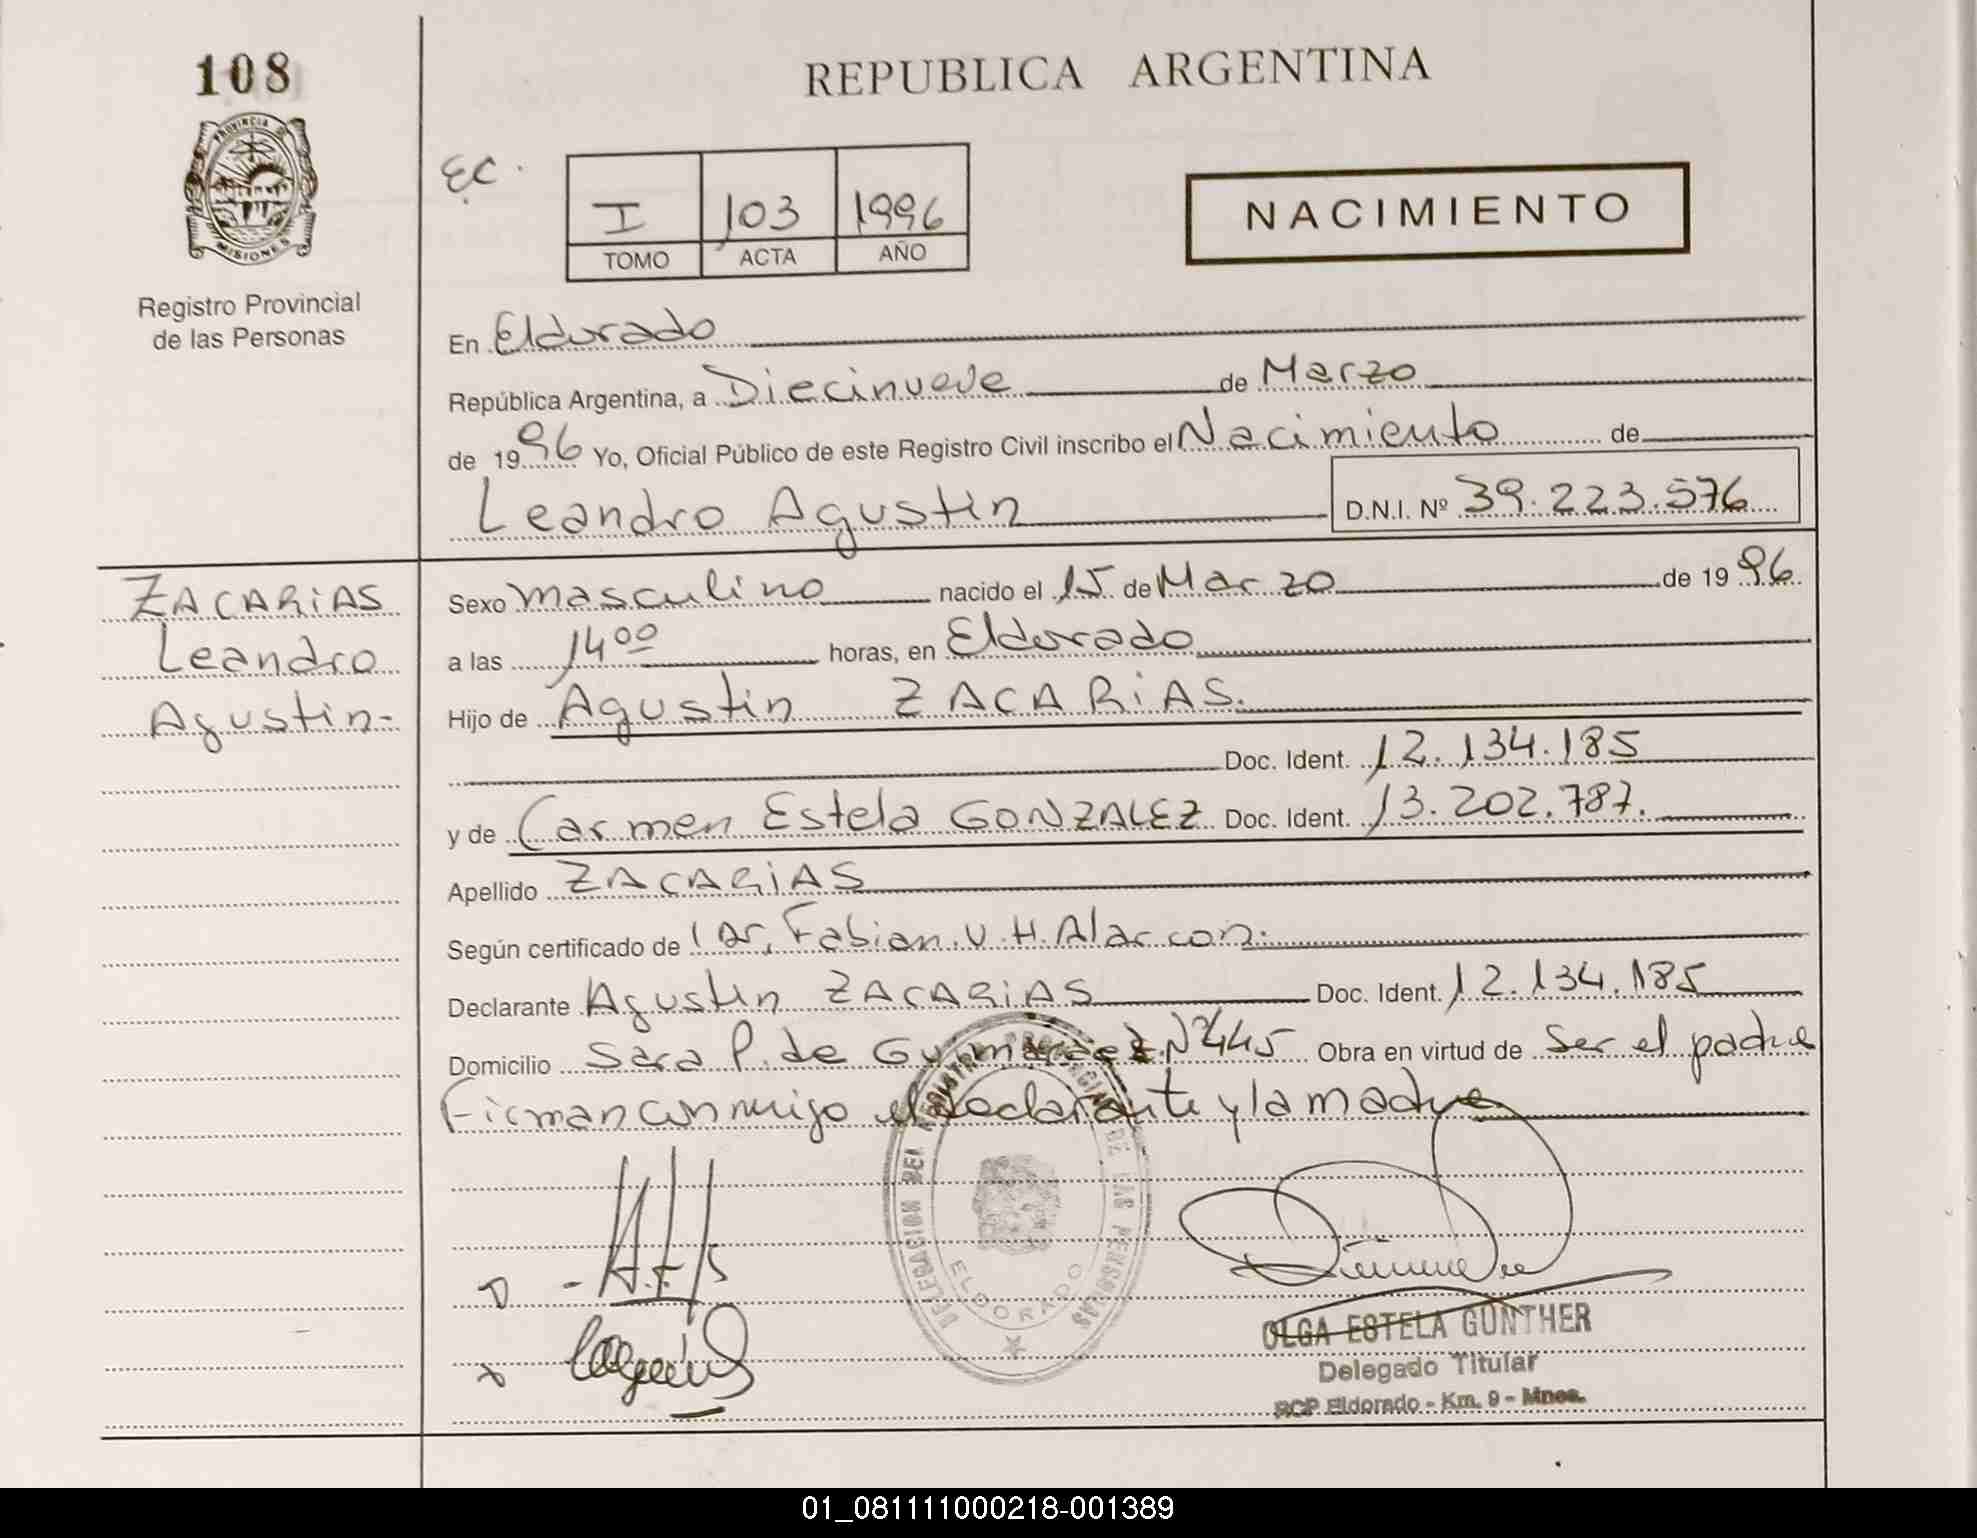 108
REPUBLICA ARGENTINA
PROVINCIA DE
MISIONES
Registro Provincial
de las Personas
EC.
I 103 1996
TOMO ACTA AÑO
NACIMIENTO
En Eldorado
República Argentina, a Diecinueve de Marzo
de 1996 Yo, Oficial Público de este Registro Civil inscribo el Nacimiento de
Leandro Agustin D.N.I. Nº 39.223.576
ZACARiAS
Leandro
Agustin-
Sexo masculino nacido el 15 de Marzo de 1996
a las 14 00 horas, en Eldorado
Hijo de Agustin ZACARiAS.
Doc. Ident. 12.134.185
y de Carmen Estela GONZALEZ Doc. Ident. 13.202.787.
Apellido ZACARiAS
Según certificado de Dr. Fabian. V. H. Alarcon.
Declarante Agustin ZACARiAS Doc. Ident. 12.134.185
Domicilio Sara P. de Nº 445 Obra en virtud de Ser el padre
Firman conmigo el declarante y la madre
DELEGACION DEL REGISTRO PROVINCIAL DE LAS PERSONAS
ELDORADO
OLGA ESTELA GUNTHER
Delegado Titular
RCP Eldorado - Km. 9 - Mnes.
01_081111000218-001389